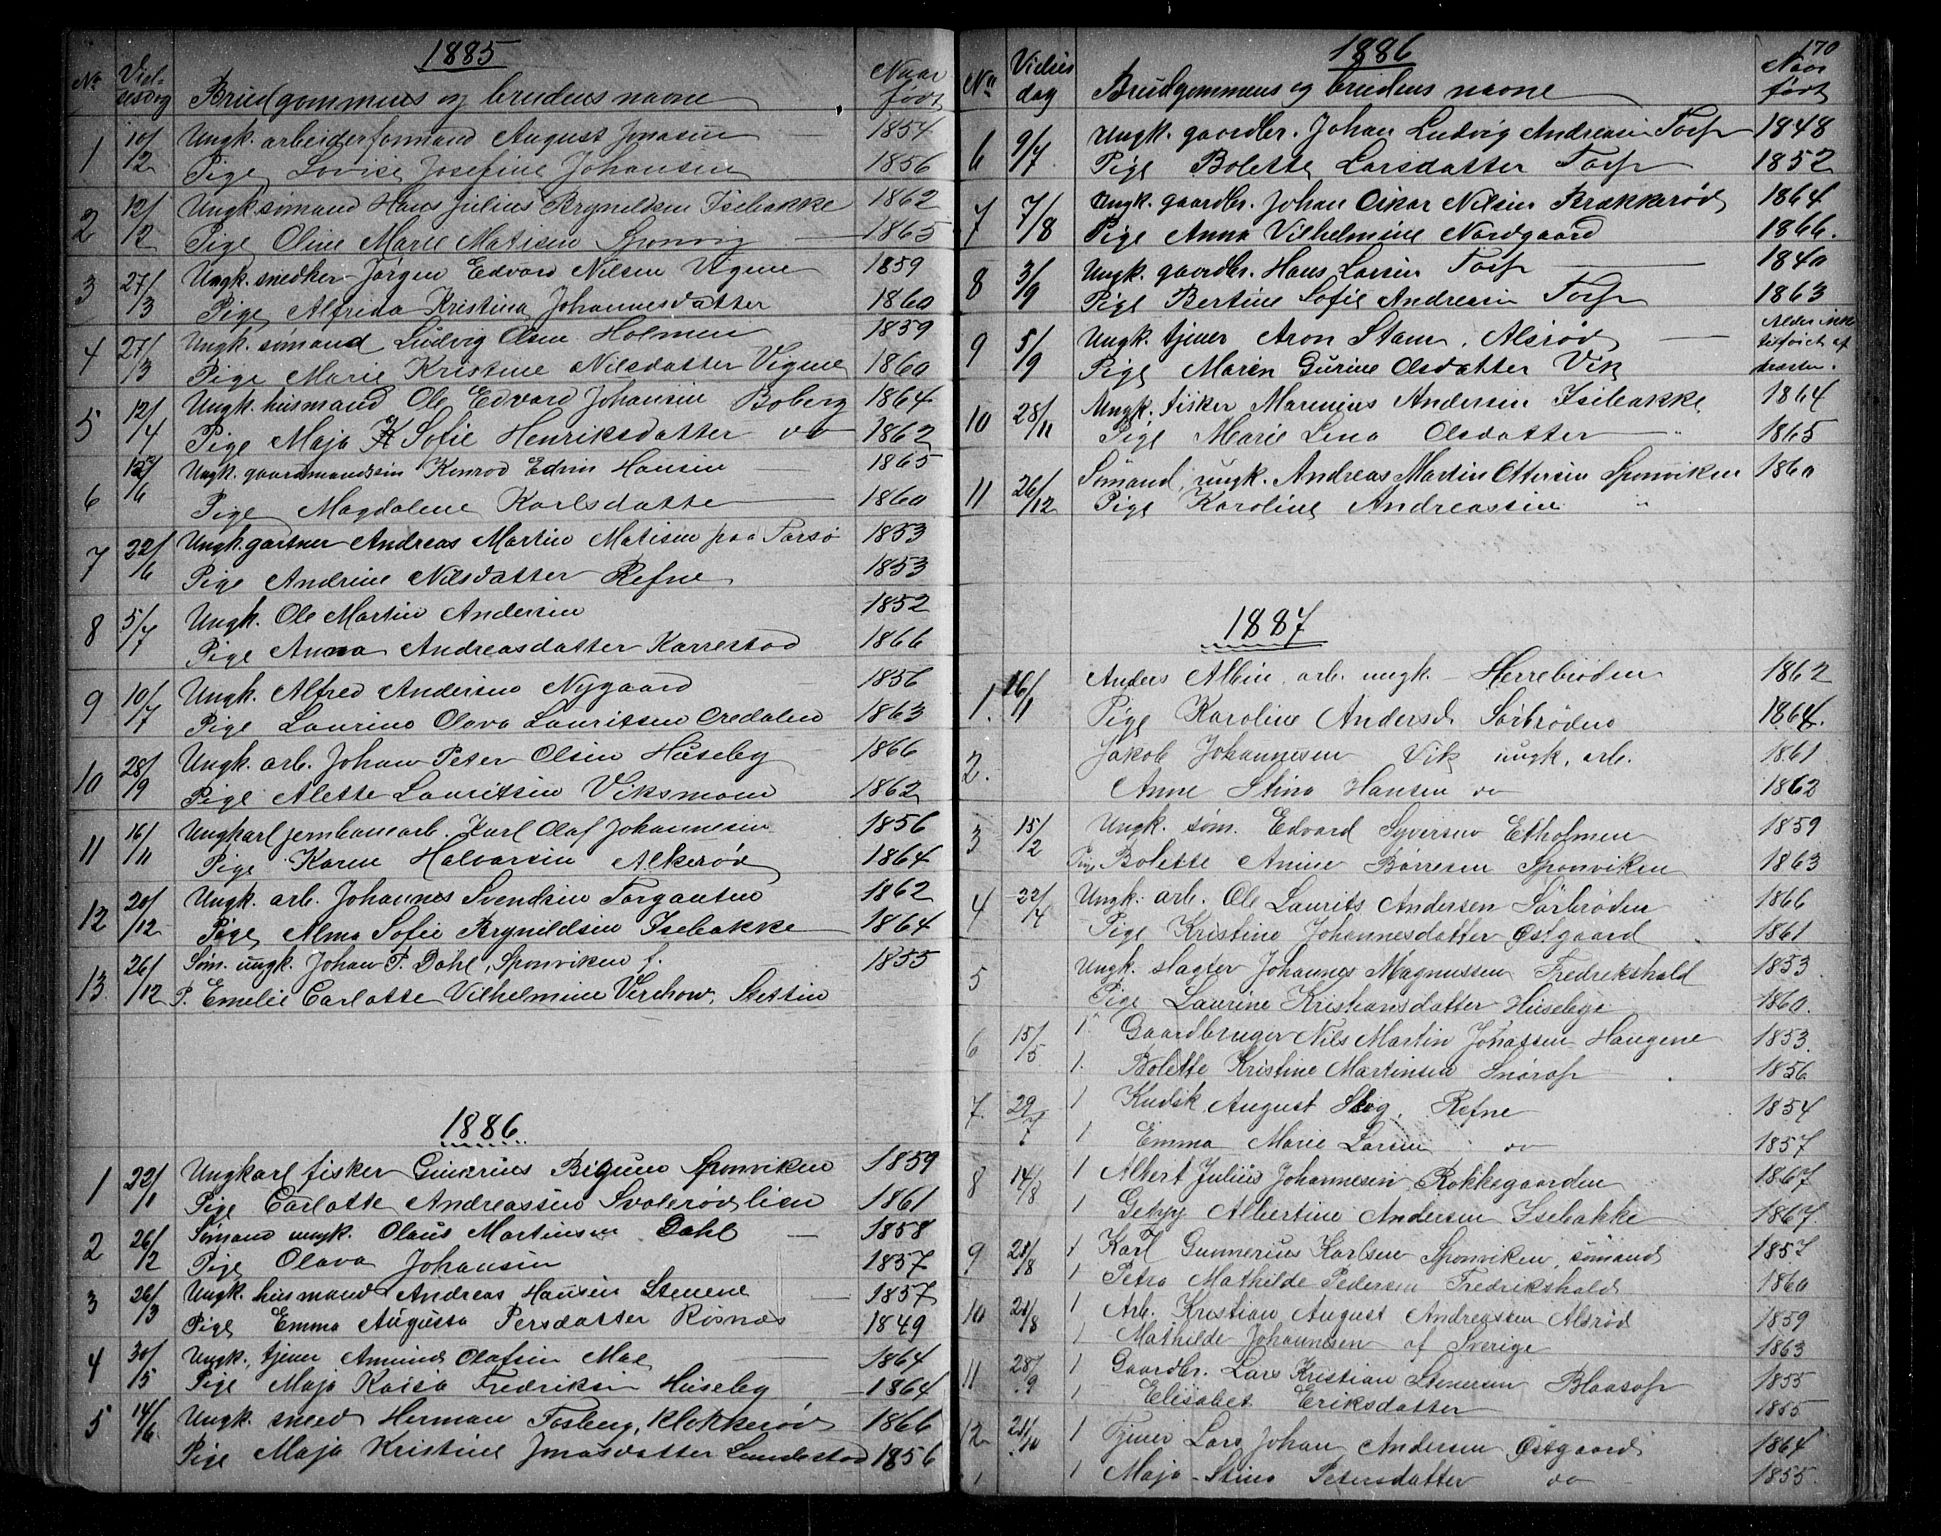 1885
No Vielsesdag Brudgommens og brudens navne Naar født
1 10/12 Ungk. arbeiderformand August Jonasen 1854
Pige Lovise Josefine Johansen 1856
2 12/12 Ungk. sømand Hans Julius Brynildsen Isebakke 1862
Pige Oline Marie Matisen Sponvig 1865
3 27/3 Ungk. snedker Jørgen Edvard Nilsen Vigene 1859
Pige Alfrida Kristina Johannesdatter 1860
4 27/3 Ungk. sømand Ludvig Olsen Holmen 1859
Pige Marie Kristine Nilsdatter Vigene 1860
5 12/4 Ungk. husmand Ole Edvard Johansen Boberg 1864
Pige Maja K Sofie Henriksdatter do 1862
6 /6 Ungk. gaardmandssøn Konrad Edvin Hansen 1865
Pige Magdalene Karlsdatter 1860
7 22/6 Ungk. gartner Andreas Martin Matisen paa 1853
Pige Andrine Nilsdatter Refne 1853
8 5/7 Ungk. Ole Martin Andersen 1852
Pige Anna Andreasdatter Karrestad 1866
9 10/7 Ungk. Alfred Andersen Nygaard 1856
Pige Laurine Olava Lauritsen Oredalen 1863
10 28/9 Ungk. arb. Johan Peter Olsen Huseby 1866
Pige Alette Lauritsen Viksmoen 1862
11 16/11 Ungkarl jernbanearb. Karl Olaf Johannesen 1856
Pige Karen Halvorsen Alkerød 1864
12 20/12 Ungk. arb. Johannes Svendsen Torgauten 1862
Pige Alma Sofie Brynildsen Isebakke 1864
13 26/12 Søm. ungk. Johan P. Dahl, Sponviken f. 1855
P. Emelie Carlotte Vilhelmine Virchow, Stettin
1886
1 22/1 Ungkarl fisker Gunerius Bigum Sponviken 1859
Pige Carlotte Andreassen Svalerødlien 1861
2 26/2 Sømand ungk. Olaus Martinsen Dahl 1858
Pige Olava Johansen 1857
3 26/3 Ungk. husmand Andreas Hansen Stenene 1857
Pige Emma Augusta Persdatter Røsnæs 1849
4 30/5 Ungk. tjener Amund Olafsen Moe 1864
Pige Maja Kaisa Fredriksen Huseby 1864
5 14/6 Ungk. smed Herman Fosberg, Klokkerød 1866
Pige Maja Kristine Jonasdatter Lundestad 1856
170
1886
No Vielses dag Brudgommens og brudens navne Naar født
6 9/7 Ungk. gaardbr. Johan Ludvig Andreasen Torp 1848
Pige Bolette Larsdatter Torp 1852
7 7/8 Ungk. gaardbr. Johan Oskar Nilsen Brækkerød 1864
Pige Anna Vilhelmine Nordgaard 1866.
8 3/9 Ungk. gaardbr. Hans Larsen Torp 1840
Pige Bertine Sofie Andresen Torp 1863
9 5/9 Ungk. tjener Aron Stam, Alsrød Alder ikke tilføiet af
Pige Maren Gurine Olsdatter Vik
10 28/11 Ungk. fisker Marenius Andersen Isebakke 1864
Pige Marie Lena Olsdatter " 1865
11 26/12 Sømand, ungk. Andreas Martin Ottersen Sponviken 1860
Pige Karoline Andreassen "
1887
1. 16/1 Anders Albin arb. ungk. Herrebrøden 1862
Pige Karoline Andersd. Sørbrøden 1864.
2. Jakob Johannesen Vik ungk. arb. 1861
Anne Stina Hansen do 1862
3 15/2 Ungk. søm. Edvard Syversen Ekholmen 1859
Pige Bolette Amine Børresen Sponviken 1863
4 22/4 Ungk. arb. Ole Laurits Andersen Sørbrøden 1866
Pige Kristine Johannesdatter Østgaard 1861
5 Ungk. slagter Johannes Magnussen Fredrikshald 1853
Pige Laurine Kristiansdatter Huseby 1860.
6 15/5 1 Gaardbruger Nils Martin Jonassen Haugene 1853.
1. Bolette Kristine Martinsen Snørop 1856
7. 29/7 1 Kudsk August Skog, Refne 1854
1 Emma Marie Larsen do 1857
8 14/8 1 Albert Julius Johannesen Rokkegaarden 1867
1 Genny Albertine Andersen Isebakke 1867.
9 28/8 1 Karl Gunnerius Karlsen Sponviken, sømand 1857
1 Petra Mathilde Pedersen Fredrikshald 1860
10 28/8 1 Arb. Kristian August Andreassen Alsrød 1859
1 Mathilde Johannesen af Sverige 1863
11 28/9 1 Gaardbr. Lars Kristian Stenersen Blaasop 1855
1 Elisabet Eriksdatter 1855
12 /10 1 Tjener Lars Johan Andersen Østgaard 1864
1 Maja-Stina Petersdatter do 1855.